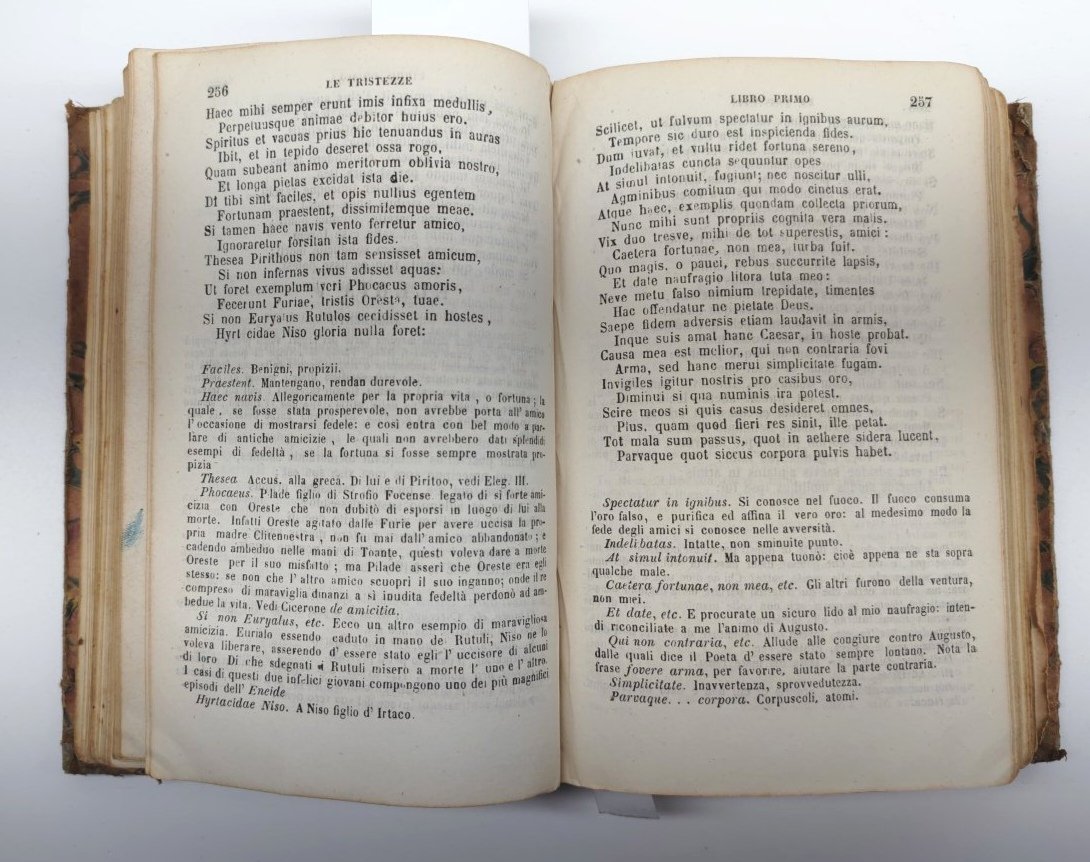 256
LE TRISTEZZE
Haec mihi semper erunt imis infixa medullis,
Perpetuusque animae debitor huius ero.
Spiritus et vacuas prius hic tenuandus in auras
Ibit, et in tepido deseret ossa rogo,
Quam subeant animo meritorum oblivia nostro,
Et longa pietas excidat ista die.
Di tibi sint faciles, et opis nullius egentem
Fortunam praestent, dissimilemque meae.
Si tamen haec navis vento ferretur amico,
Ignoraretur forsitan ista fides.
Thesea Pirithous non tam sensisset amicum,
Si non infernas vivus adisset aquas:
Ut foret exemplum veri Phocaeus amoris,
Fecerunt Furiae, tristis Oresta, tuae.
Si non Euryalus Rutulos cecidisset in hostes,
Hyrtacidae Niso gloria nulla foret:
Faciles. Benigni, propizii.
Praestent. Mantengano, rendan durevole.
Haec navis. Allegoricamente per la propria vita, o fortuna; la
quale, se fosse stata prosperevole, non avrebbe porta all' amico
l'occasione di mostrarsi fedele: e così entra con bel modo a par-
lare di antiche amicizie, le quali non avrebbero dati splendidi
esempi di fedeltà, se la fortuna si fosse sempre mostrata pro-
pizia
Thesea Accus. alla greca. Di lui e di Piritoo, vedi Eleg. III.
Phocaeus. Pilade figlio di Strofio Focense legato di sì forte ami-
cizia con Oreste che non dubitò di esporsi in luogo di lui alla
morte. Infatti Oreste agitato dalle Furie per avere uccisa la pro-
pria madre Clitennestra, non fu mai dall'amico abbandonato; e
cadendo ambeduo nelle mani di Toante, questi voleva dare a morte
Oreste per il suo misfatto; ma Pilade asserì che Oreste era egli
stesso: se non che l'altro amico scuoprì il suo inganno; onde il re
compreso di maraviglia dinanzi a sì inudita fedeltà perdonò ad am-
bedue la vita. Vedi Cicerone de amicitia.
Si non Euryalus, etc. Ecco un altro esempio di maravigliosa
amicizia. Eurialo essendo caduto in mano de' Rutuli, Niso ne lo
voleva liberare, asserendo d' essere stato egli l' uccisore di alcuni
di loro Di che sdegnati i Rutuli misero a morte l' uno e l' altro.
I casi di questi due infelici giovani compongono uno dei più magnifici
episodi dell' Eneide
Hyrtacidae Niso. A Niso figlio d' Irtaco.
LIBRO PRIMO
257
Scilicet, ut fulvum spectatur in ignibus aurum,
Tempore sic duro est inspicienda fides.
Dum iuvat, et vultu ridet fortuna sereno,
Indelibatas cuncta sequuntur opes
At simul intonuit, fugiunt; nec noscitur ulli,
Agminibus comitum qui modo cinctus erat.
Atque haec, exemplis quondam collecta priorum,
Nunc mihi sunt propriis cognita vera malis.
Vix duo tresve, mihi de tot superestis, amici:
Caetera fortunae, non mea, turba fuit.
Quo magis, o pauci, rebus succurrite lapsis,
Et date naufragio litora tuta meo:
Neve metu falso nimium trepidate, timentes
Hac offendatur ne pietate Deus.
Saepe fidem adversis etiam laudavit in armis,
Inque suis amat hanc Caesar, in hoste probat.
Causa mea est melior, qui non contraria fovi
Arma, sed hanc merui simplicitate fugam.
Invigiles igitur nostris pro casibus oro,
Diminui si qua numinis ira potest.
Scire meos si quis casus desideret omnes,
Plus, quam quod fieri res sinit, ille petat.
Tot mala sum passus, quot in aethere sidera lucent,
Parvaque quot siccus corpora pulvis habet.
Spectatur in ignibus. Si conosce nel fuoco. Il fuoco consuma
l'oro falso, e purifica ed affina il vero oro: al medesimo modo la
fede degli amici si conosce nelle avversità.
Indelibatas. Intatte, non sminuite punto.
At simul intonuit. Ma appena tuonò: cioè appena ne sta sopra
qualche male.
Caetera fortunae, non mea, etc. Gli altri furono della ventura,
non miei.
Et date, etc. E procurate un sicuro lido al mio naufragio: inten-
di riconciliate a me l'animo di Augusto.
Qui non contraria, etc. Allude alle congiure contro Augusto,
dalle quali dice il Poeta d' essere stato sempre lontano. Nota la
frase fovere arma, per favorire, aiutare la parte contraria.
Simplicitate. Inavvertenza, sprovvedutezza.
Parvaque. . . corpora. Corpuscoli, atomi.